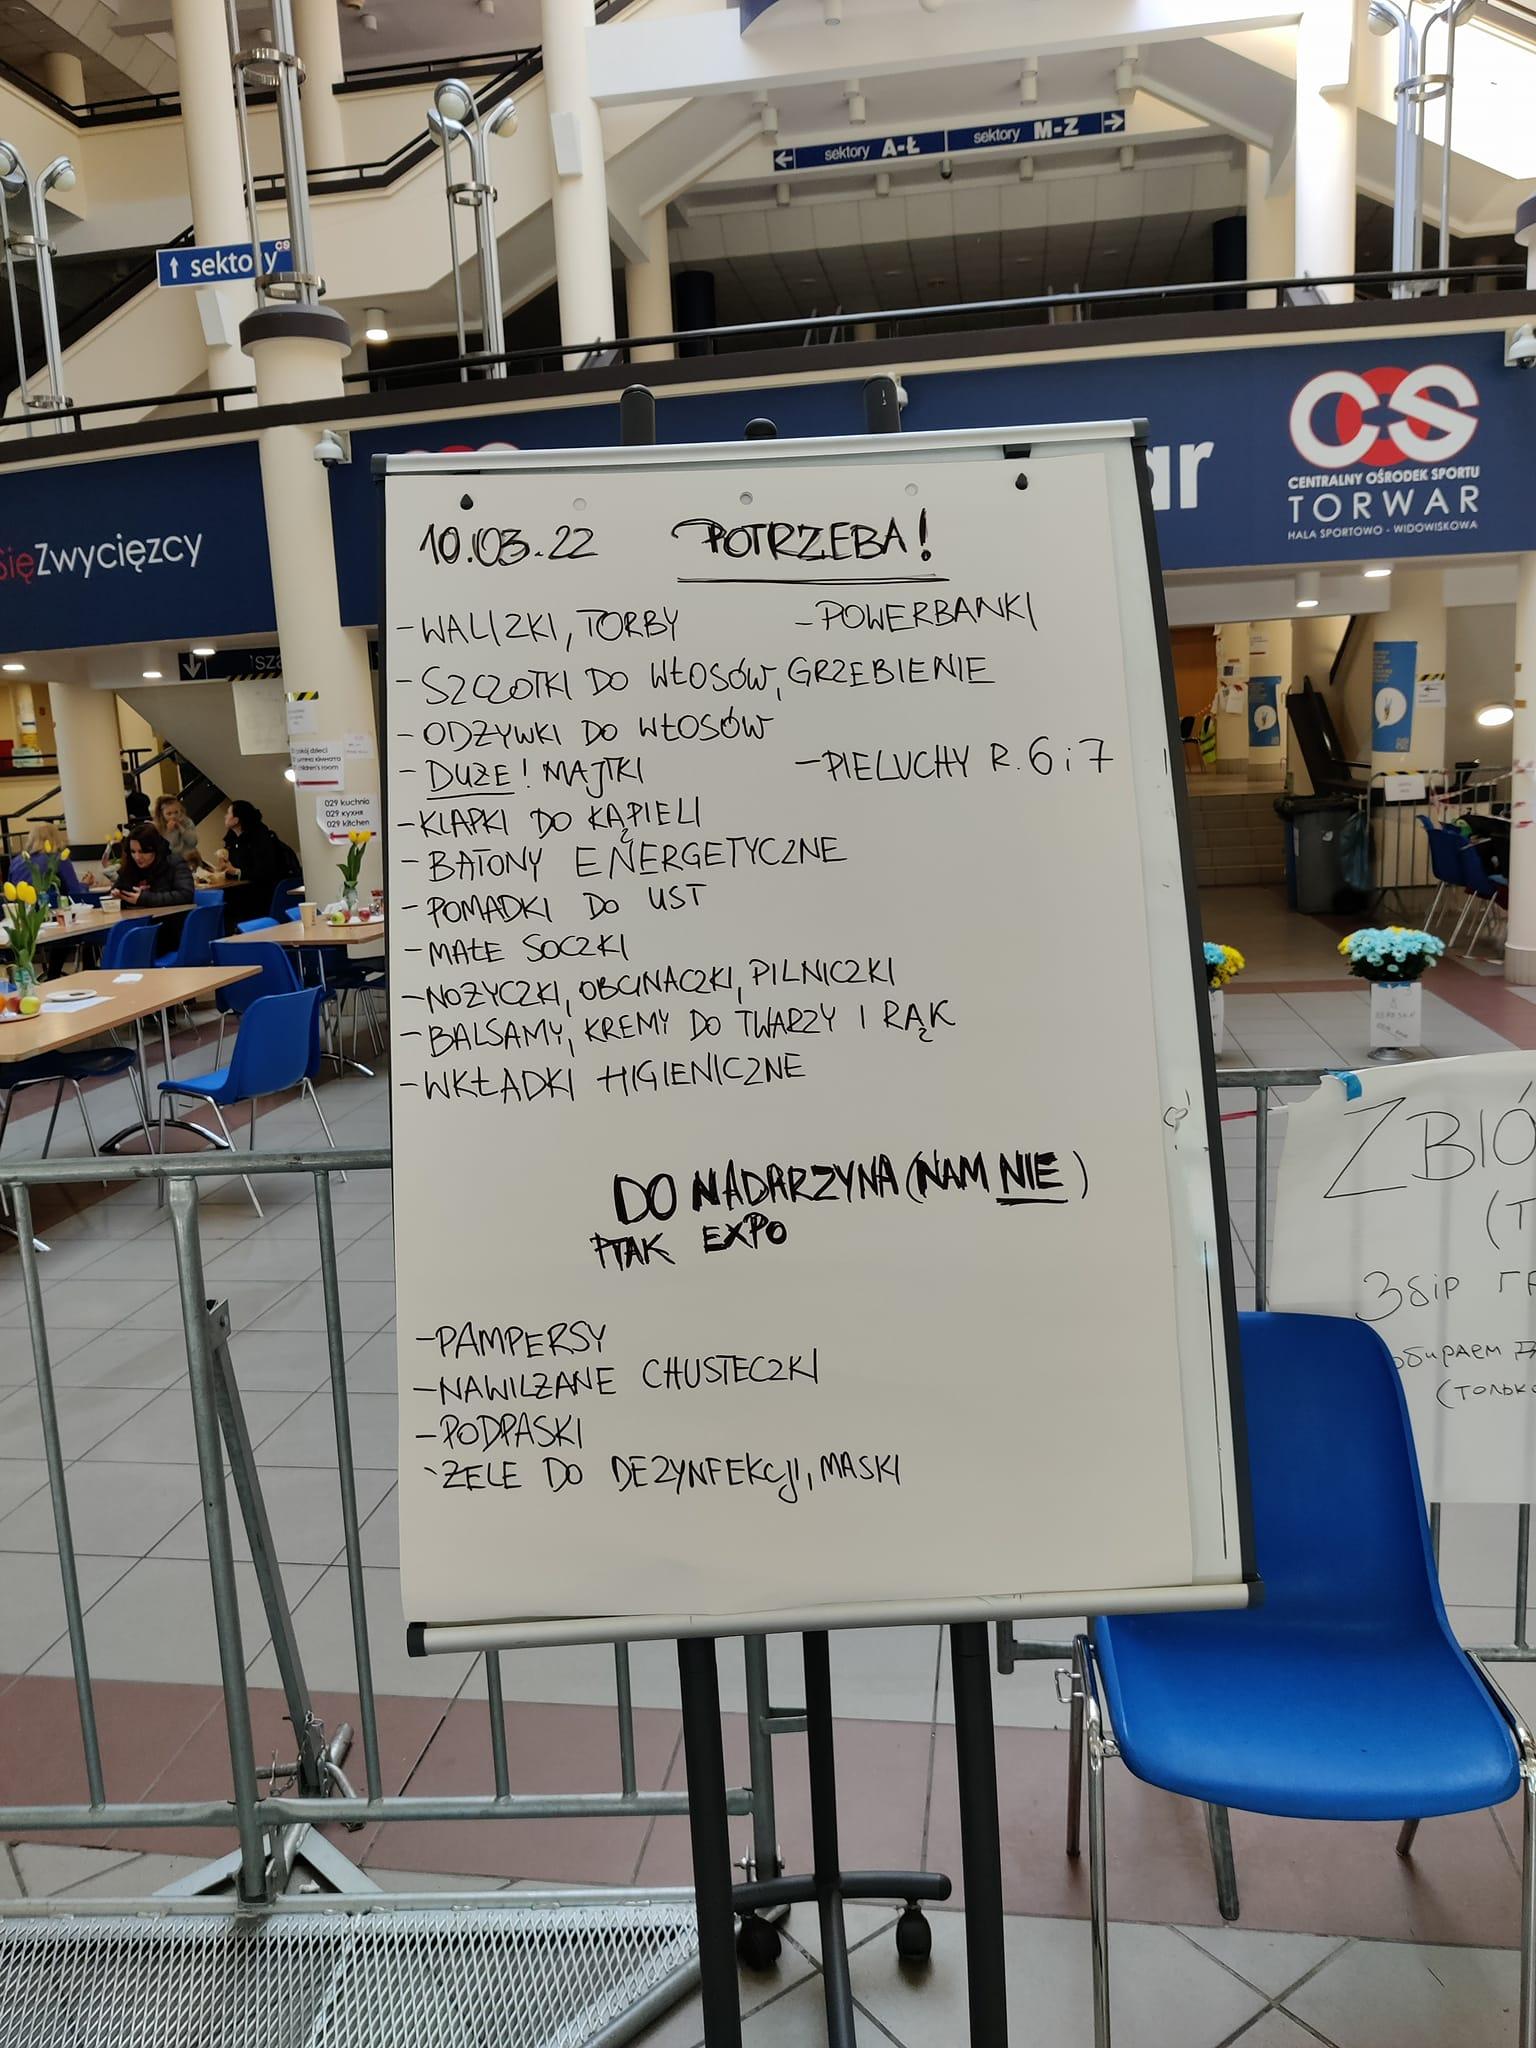 sektory A-Ł sektory M-Z
sektory
CS
CENTRALNY OŚRODEK SPORTU
TORWAR
HALA SPORTOWO - WIDOWISKOWA
sięZwycięzcy
ar
10.03.22 POTRZEBA!
- WALIZKI, TORBY - POWERBANKI
- SZCZOTKI DO WŁOSÓW, GRZEBIENIE
- ODŻYWKI DO WŁOSÓW
- DUŻE! MAJTKI - PIELUCHY R. 6 i 7
- KLAPKI DO KĄPIELI
- BATONY ENERGETYCZNE
- POMADKI DO UST
- MAŁE SOCZKI
- NOŻYCZKI, OBCINACZKI, PILNICZKI
- BALSAMY, KREMY DO TWARZY I RĄK
- WKŁADKI HIGIENICZNE
DO NADARZYNA (NAM NIE)
PTAK EXPO
- PAMPERSY
- NAWILŻANE CHUSTECZKI
- PODPASKI
- ŻELE DO DEZYNFEKCJI, MASKI
pokój dzieci
children's room
029 kuchnia
029 кухня
029 kitchen
ZBIÓ
(T
Збір ГР
обираем
(только